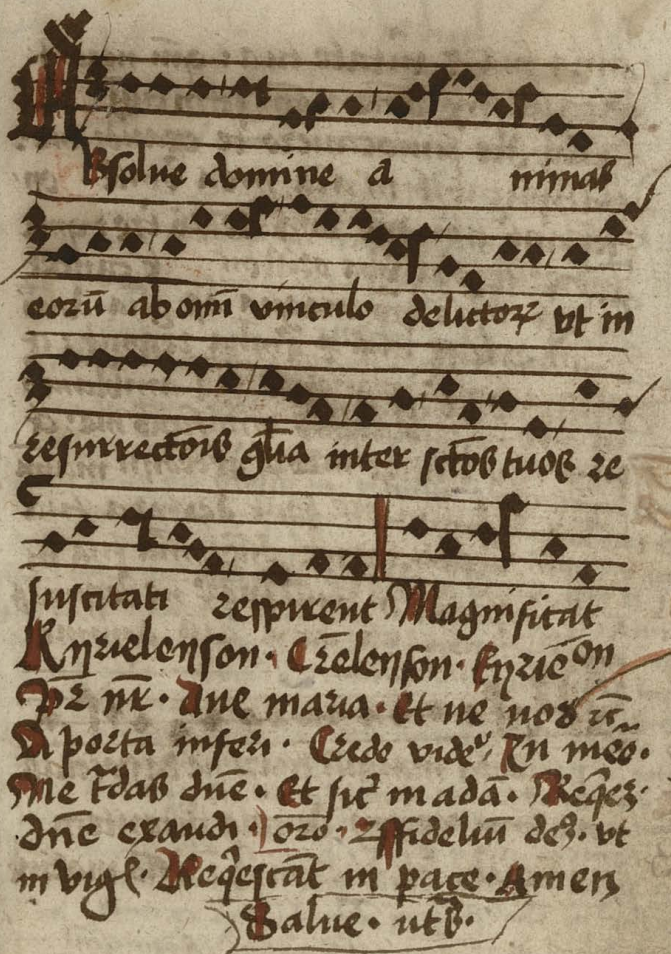 Absolue domine a nimas
eorū ab om̄i vinculo delictoꝝ vt in
resurrectōis gl̄ia inter sctōs tuos re
suscitati respirent Magnificat
Kyrieleyson · Cr̄eleyson · kyrie on
Pr̄ nr̄ · Aue maria · Et ne nos
A porta inferi · Credo vide In
Me t̄das dn̄e · Et sic̄ in adā · Reqe
dn̄e exaudi · oro fideliū de vt
in vigl · Reqescāt in pace · Amen
Salue · ut